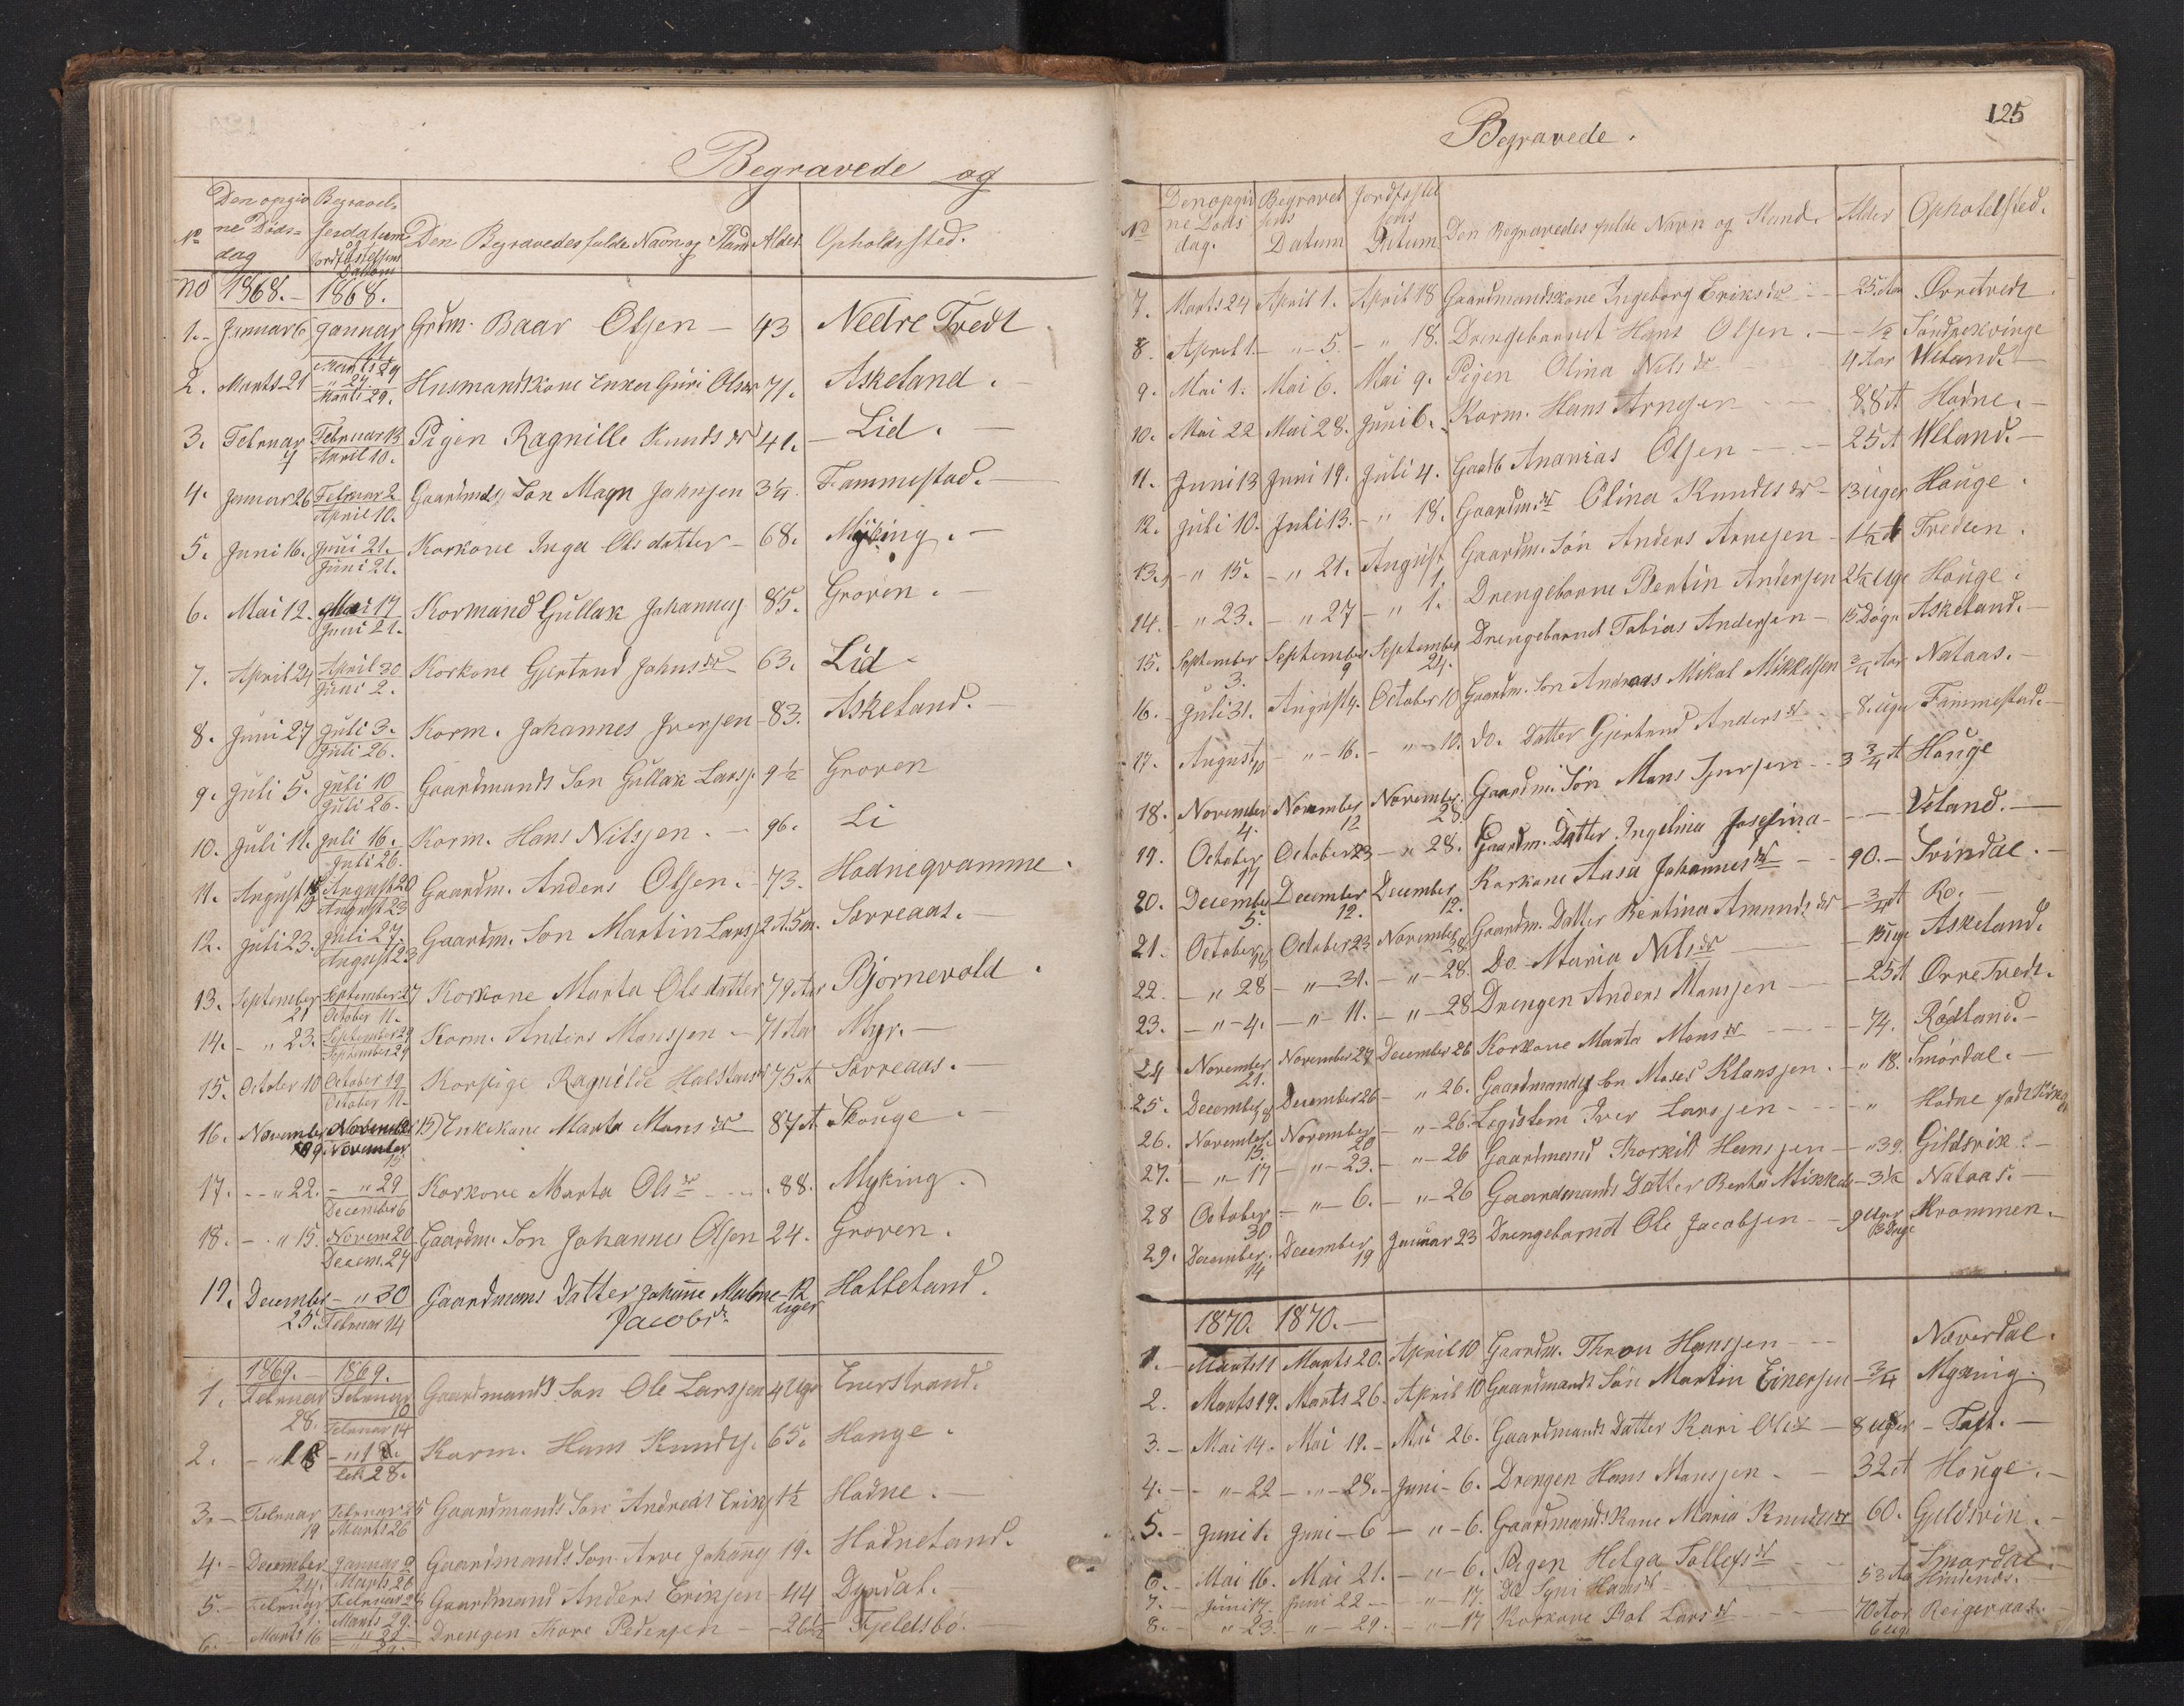 Begravede og
No
Den opgivne Døds-dag
Begravelsesdatum og Jordfæstelsens Datum
Den Begravedes fulde Navn og Stand
Alder
Opholdssted.
no 1868. – 1868.
1. Januar 6 Januar 11 Grdm. Baar Olsen – 43 Nedre Tvedt.
2. Marts 21 Marts 29. Husmandskone Enken Guri Olsdr 71. Askeland. –
3. Februar 7 Februar 13 April 10. Pigen Ragnille Knudsdr 41. – Lid. –
4. Januar 26 Februar 2 April 10. Gaardmds Søn Magn Johnsen 3¼ Fammestad. –
5. Juni 16. Juni 21. Juni 21. Korkone Inga Olsdatter – 68. Myking. –
6. Mai 12. Mai 17 Juni 21. Kormand Gullak Johannes 85. Groven. –
7. April 24 April 30 Juni 2. Korkone Gjertrud Johnsdr 63. Lid –
8. Juni 27 Juli 3. Juli 26. Korm. Johannes Iversen – 83. Askeland. –
9. Juli 5. Juli 10 Juli 26. Gaardmands Søn Gullak Larss 9½ Groven
10. Juli 11. Juli 16. Juli 26. Korm. Hans Nilssen. – 96. Li
11. August 15 August 20 August 23 Gaardm. Anders Olsen. – 73. Hodnegramme.
12. Juli 23. Juli 27. August 23 Gaardm. Søn Martin Larss 2 A. 5 m. Sørreaas.
13. September 21 September 27 October 11. Korkone Marta Olsdatter 79 Aar Bjørnevold.
14. – " 23. September 29 September 29 Korm. Anders Monssen – 71 Aar Myr. –
15. October 10 October 19 October 11. Korpige Ragnilde Halstensdr 75 A Sørreaas. –
16. November 9. November 15 Enkekone Marta Monsdr 87 A Houge. –
17. – " 22. – " 29 December 6 Korkone Marta Olsdr – 88. Myking.
18. – " 15. Novem 20 Decem. 27 Gaardm. Søn Johannes Olsen 24. Groven.
19. December 25. – " 30 Februar 14 Gaardmans Datter Johanne Malene Jacobsdr 12 uger Halleland.
1869. – 1869.
1. Februar 28. Februar 10 Februar 14 Gaardmands Søn Ole Larssen 4 Uger Enerstrand.
2. – " – " 18. 28. Korm. Hans Knuds. 65. Houge.
3. – Februar 19 Februar 25 Marts 26 Gaardmands Søn Andreas Eriks 1½ Hodne. –
4. – December 24. Januar 9 Marts 26 Gaardmands Søn Arve Johans 19. Hodneland.
5. – Februar 21. Februar 28 Marts 29. Gaardmand Anders Eriksen – 44 Dyrdal. –
6. – Marts 16 – " 22 – " 29. – Drengen Thore Pedersen – 26½ Fjeldsbø. –
125
Begravede.
No
Den opgivne Døds dag.
Begravelsens Datum
Jordfæstelsens Datum
Den Begravedes fulde Navn og Stand.
Alder
Opholdssted.
7. Marts 24 April 1. April 18 Gaardmandskone Ingeborg Eriksdr – 25 Aar Ørretvedt.
8. April 1. – " – 5. – " 18. Drengebarnet Hans Olsen. – ½ Søndrekvinge
9. Mai 1. Mai 6. Mai 9. Pigen Olina Nilsdr 4 Aar Weland.
10. Mai 22 Mai 28. Juni 6. Korm. Hans Arnesen – 88 A Hodne. –
11. Juni 13 Juni 19. Juli 4. Gaardb Ananias Olsen – 25 A Weland. –
12. Juli 10. Juli 13. – " 18. Gaardm. dr Olina Knudsdr – 13 uger Houge.
13. – " 15. – " 21. August 1. Gaardm. Søn Anders Arnesen – 1½ A Tredeen.
14. – " 23. – " 27 – " 1. Drengebarne Bertin Andersen 2½ Uge Houge.
15. September 3. September 9 September 24. Drengebarnet Tobias Andersen – 15 Døgn Askeland. –
16. – Juli 31. August 4. October 10 Gaardm. Søn Andreas Mikal Mikkelsen ¾ Aar Nataas. –
17. August 10 – " – 16. – " – 10. do. Datter Gjertrud Andersdr – 8. uger Fammestad. –
18. November 4. November 12 November 28. Gaardm. Søn Mons Sjursen – 3¾ A Houge
19. October 17 October 23 – " 28. Gaardm. Datter Ingelina Josefina – Veland. –
20. December 5. December 12. December 12. Korkone Aasa Johannesdr – 90. – Svindal. –
21. October October 23 November 28 Gaardm. Datter Bertina Amundsdr ¾ A Ro. –
22. – " 28 – " – 31. – " – 28. Do Maria Nilsdr – 15 uge Askeland.
23. – " – 4. – " – 11. – " – 28 Drengen Anders Monssen – 25 A Ørre Tvedt.
24 November 21. November 27 December 26 Korkone Marta Monsdr – 74. Rødland. –
25. December December 26 – " 26. Gaardmands Søn Moses Klaussen. – " 18. Smørdal. –
26. November 13. November 20 – " – 26. Legdslem Iver Larssen – " Hodne
27. – " – 17 – " – 23. – " – 26 Gaardmand Thorkild Hanssen – " 39. Gildsvik. –
28 October 30 – " – 6. – " – 26 Gaardmands Datter Berta Mikkels – 3½ Nataas. –
29. December 14 December 19 Januar 23 Drengebarndt Ole Jacobsen – 9 Uger Krommen. –
1870. 1870. –
1. – Marts 11 Marts 20. April 10 Gaardm. Thron Hanssen – Nøverdal.
2. Marts 19. Marts 26. April 10 Gaardmands Søn Martin Einersen ¾ Myking.
3. – Mai 14. Mai 19. – Mai 26. Gaardmands Datter Kari Olsdr – 8 uger – Toft. –
4. – " – 22 – " – 28. – Juni – 6. Drengen Hans Monssen – 32 A Houge. –
5. – Juni 1. Juni – 6 – " – 6. Gaardmands Kone Maria Knudsdr 60. Guldsvin. –
6. – Mai 16. Mai 21. – " – 6. Pigen Helga Tollefsdr – 53 Aa Smørdal. –
7. – Juni 17. Juni 22 – " – 17. Do Syni Hansdr – Hindenes. –
8. – " – 23. – " – 29. – " – 17 Korkone Bol Larsdr – 70 Aar Reigeraas. –